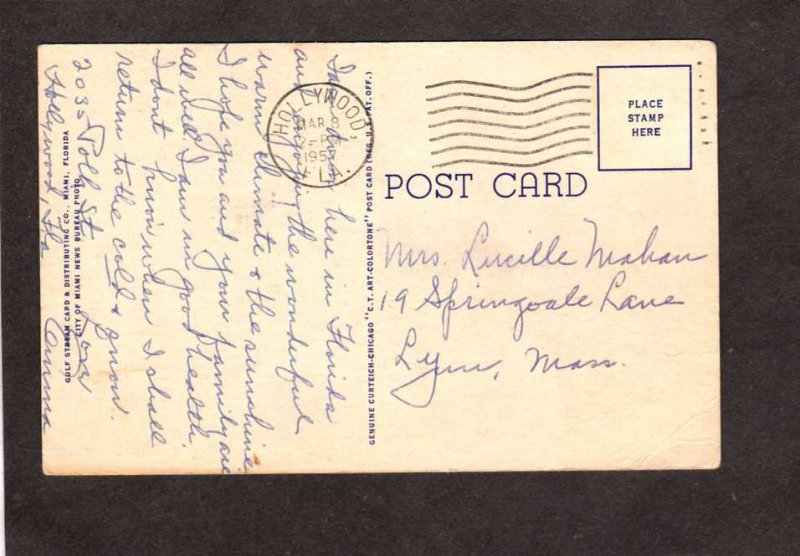 I am down here in Florida
and enjoying the wonderful
warm climate & the sunshine
I hope you and your family are
all well. I am in good health
I dont know when I shall
return to the cold & snow.
Love
Anna
2035 Polk St
Hollywood, Fla
GULF STREAM CARD & DISTRIBUTING CO., MIAMI, FLORIDA
CITY OF MIAMI NEWS BUREAU PHOTO
GENUINE CURTEICH-CHICAGO "C.T. ART-COLORTONE" POST CARD (REG. U.S. PAT. OFF.)
HOLLYWOOD,
MAR 8
FLA.
PLACE
STAMP
HERE
POST CARD
Mrs. Lucille Mahan
19 Springvale Lane
Lynn, Mass.